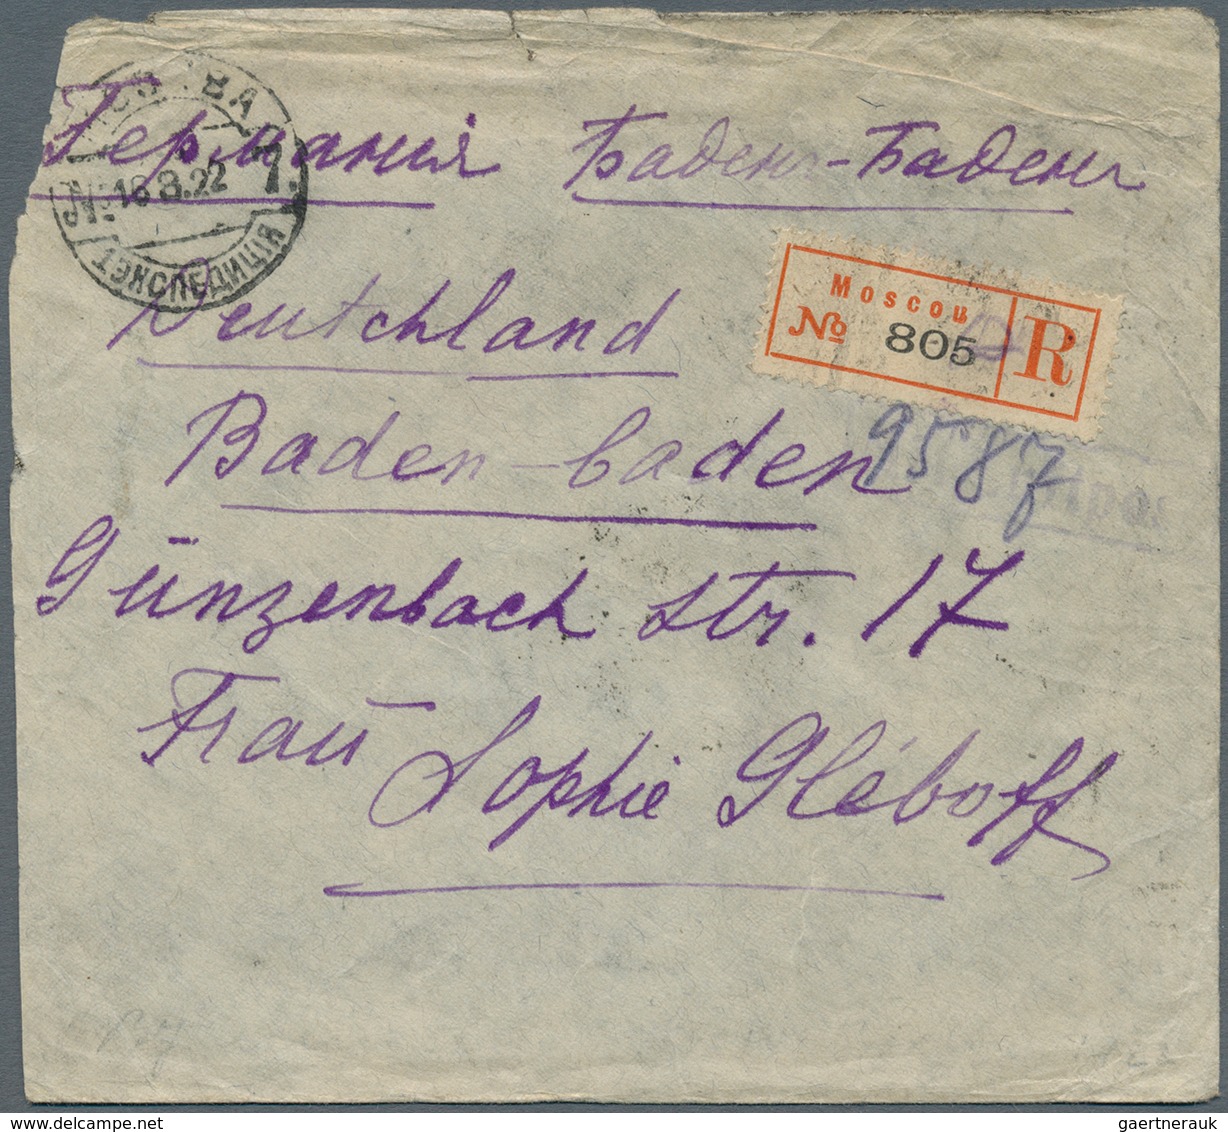 МОСКВА
Германия Баденъ-Баденъ
№ 16.8.22 1.
1 ЭКСПЕДИЦІЯ
Deutchland
Moscou
№ 805 R
Baden-baden
9587
Günzenbach str. 17
Frau Sophie Gléboff
gaertnerauk